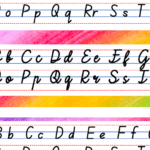 o Pp Qq Rr Ss T
Bb Cc Dd Ee Ff G
Oo Pp Qq Rr Ss I
Bb Cc Dd Ee Ff G